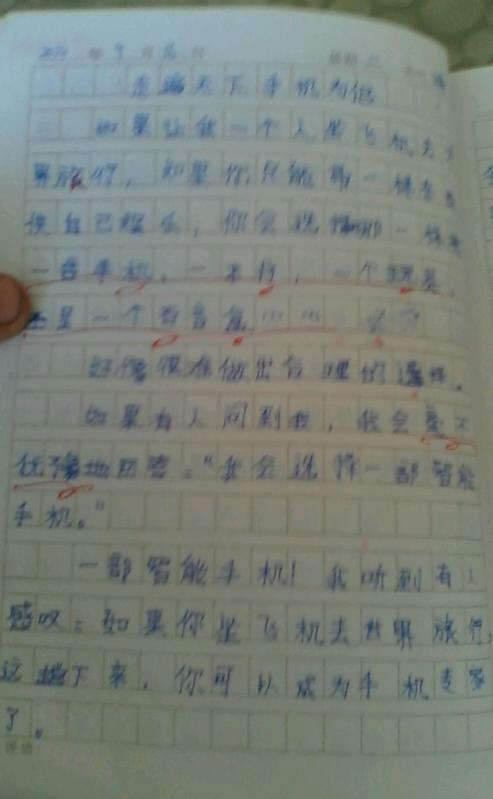 年9月16日
走遍天下手机为侣
如果让我一个人坐飞机去
界旅行，如果你只能带一样东西
使自己娱乐，你会选择哪一样
一台手机，一本书，一个玩具，
还是一个百音盒……
好像很难做出合理的选择。
如果有人问到我，我会毫不
优豫地回答："我会选择一部智能
手机。"
一部智能手机！我听到有人
感叹：如果你坐飞机去世界旅行，
这趟下来，你可以成为手机专家
了。
评语